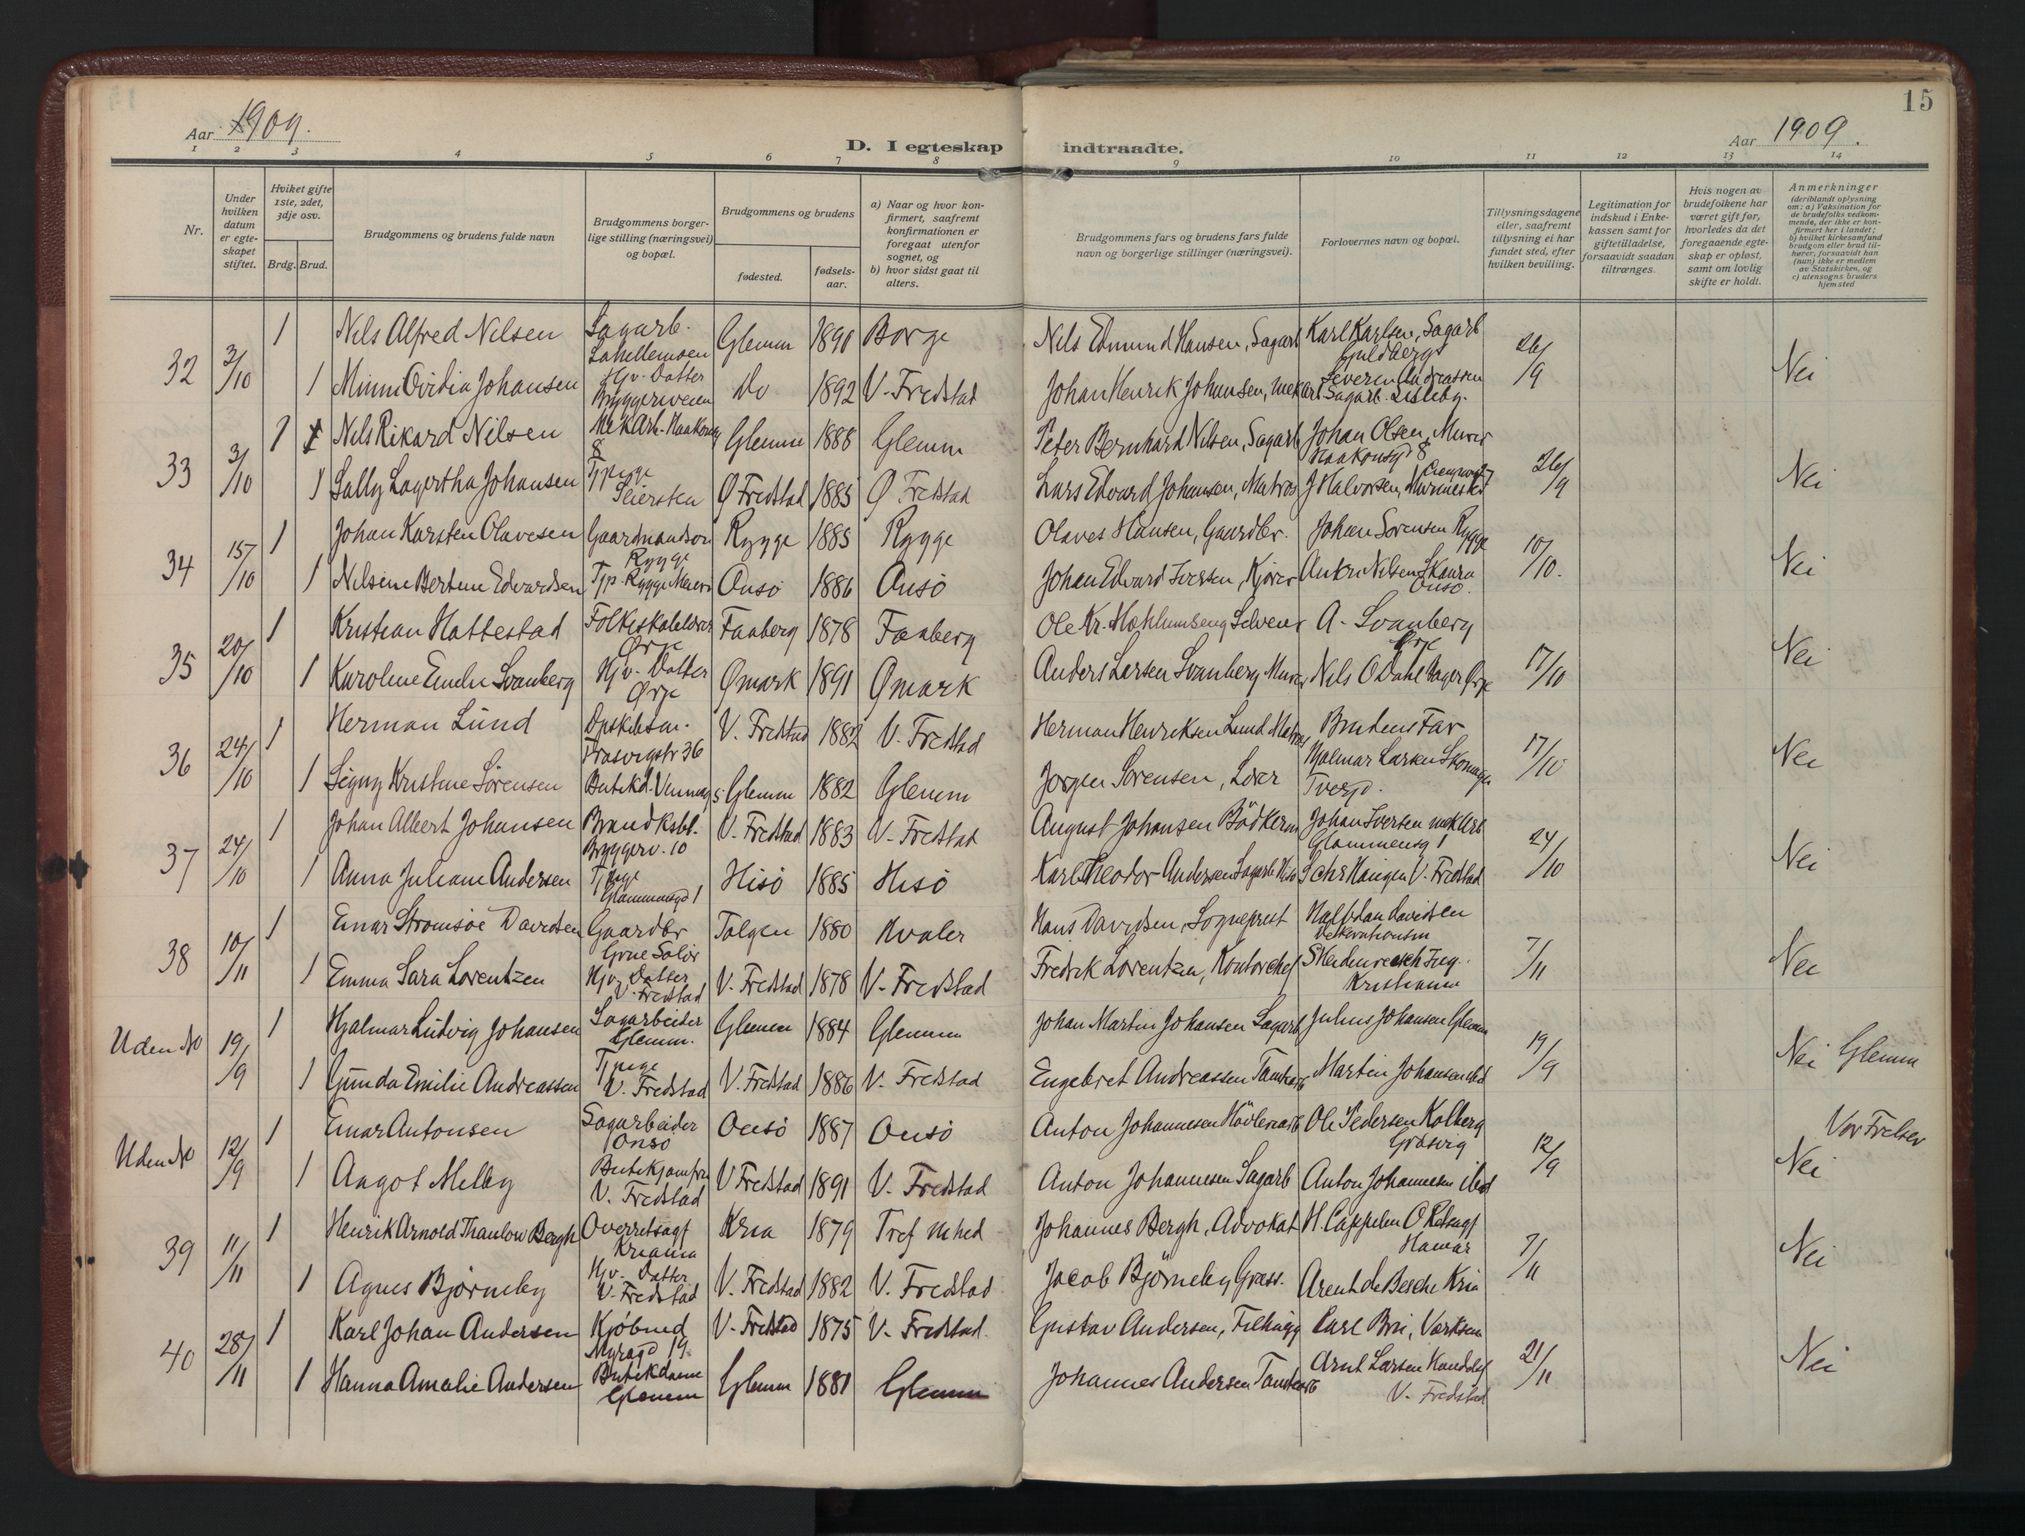 15
Aar 1909.
D. I egteskap indtraadte.
Aar 1909.
1 2 3 4 5 6 7 8 9 10 11 12 13 14
Nr.
Under hvilken datum er egteskapet stiftet.
Hviket gifte 1ste, 2det, 3dje osv.
Brdg. Brud.
Brudgommens og brudens fulde navn
Brudgommens borgerlige stilling (næringsvei) og bopæl.
Brudgommens og brudens
fødested.
fødselsaar.
a) Naar og hvor konfirmert, saafremt konfirmationen er foregaat utenfor sognet, og
b) hvor sidst gaat til alters.
Brudgommens fars og brudens fars fulde navn og borgerlige stillinger (næringsvei).
Forlovernes navn og bopæl.
Tillysningsdagene eller, saafremt tillysning ei har fundet sted, efter hvilken bevilling.
Legitimation for indskud i Enkekassen samt for giftetilladelse, forsaavidt saadan tiltrænges.
Hvis nogen av brudefolkene har været gift før, hvorledes da det foregaaende egteskap er opløst, samt om lovlig skifte er holdt.
Anmerkninger (deriblandt oplysning om: a) Vaksination for de brudefolks vedkommende, der ikke er konfirmert her i landet; b) hvilket kirkesamfund brudgom eller brud tilhører, forsaavidt han (hun) ikke er medlem av Statskirken, og c) utensogns bruders hjemsted
32 3/10 1 Nils Alfred Nilsen Sagarb. Glemm 1890 Borge Nils Edmund Hansen, Sagarb Karl Karlsen, Sagarb 26/9 Nei
1 Minni Ovidia Johansen Hjv. Datter Bryggeriveien Do 1892 V. Fredstad Johan Henrik Johansen, mek arb Severin Andreassen Sagarb. Lisleby.
33 3/10 1 Nils Rikard Nilsen Mek Arb. Haakonsg 8 Glemm 1888 Glemm Peter Bernhard Nilsen, Sagarb Johan Olsen, Murer Haakonsgd 8 26/9 Nei
1 Sally Lagertha Johansen Tjpige Seiersten Ø Fredstad 1885 Ø Fredstad Lars Edvard Johansen, Matros J Halvorsen, Murmester
34 15/10 1 Johan Karsten Olavesen Gaardmandsøn Rygge Rygge 1885 Rygge Olaves Hansen, Gaardbr. Johan Sørensen Rygge 10/10. Nei
1 Nilsine Bertine Edvardsen Tjp. Rygge Onsö 1886 Onsö Johan Edvard Iversen, Kjører Anton Nilsen Skaara Onsö.
35 20/10 1 Kristian Hattestad Folkeskolelærer Ørje Faaberg 1878 Faaberg Ole Kr. A. Svanberg Ørje 17/10 Nei
1 Karoline Emelie Svanberg Hjv. Datter Ørje Ømark 1891 Ømark Anders Larsen Svanberg Murer Nils O Dahl Ørje
36 24/10 1 Herman Lund 36 V. Fredstad 1882 V. Fredstad Herman Henriksen Lund Matros Brudens Far 17/10 Nei
1 Signy Kristine Sørensen Butikd. Glemm 1882 Glemm Jørgen Sørensen, Hjalmar Larsen Skomager
37 24/10 1 Johan Albert Johansen Bryggerv. 10 V. Fredstad 1883 V. Fredstad August Johansen Bödkerm Johan Iversen mek Arb Glommensg 1 24/10 Nei
1 Anna Juliane Andersen Tjpige Glommensgd 1 Hisö 1885 Hisö Karl Theodor Andersen Sagarb Hisö Haugen V. Fredstad
38 10/11 1 Einar Stromsöe Davidsen Gaardbr Grue Solör Tolgen 1880 Hvaler Hans Davidsen, Sogneprest Halfdan Davidsen 7/11 Nei
1 Emma Sara Lorentzen Hjv. Datter V. Fredstad V. Fredstad 1878 V. Fredstad Fredrik Lorentzen, Kontorchef S Heidenreich Ing. Kristiania
Uden No 19/9 1 Hjalmar Ludvig Johansen Sagarbeider Glemm. Glemm 1884 Glemm Johan Martin Johansen Sagarb Julius Johansen Glemm 19/9 Nei Glemm
1 Gunda Emilie Andreassen Tjpige V. Fredstad V. Fredstad 1886 V. Fredstad Engebret Andreassen Tomtearb Martin Johansen ibd
Uden No 12/9 1 Einar Antonsen Sagarbeider Onsö Onsö 1887 Onsö Anton Johannesen Høvleriarb Ole Pedersen Kolberg 12/9 Nei Vor Frelser
1 Aagot Melby Butikjomfru V. Fredstad V Fredstad 1891 V. Fredstad Anton Johannesen Sagarb Anton Johannesen ibd
39 11/11 1 Henrik Arnold Thaulow Bergh Overretssagf Kriania Kria 1879 Tref mhed Johannes Bergh, Advokat H. Cappelen O Retssagf Hamar 7/11 Nei
1 Agnes Bjørneby Hjv. Datter V. Fredstad V. Fredstad 1882 V. Fredstad Jacob Bjørneby Gross. Arent de Besche Kria
40 28/11 1 Karl Johan Andersen Kjöbmd Myragd 19 V. Fredstad 1875 V. Fredstad. Gustav Andersen, Filhugg Carl Bru, Værksm 21/11 Nei
1 Hanna Amalie Andersen Butikdame Glemm Glemm 1881 Glemm Johannes Andersen Tomtearb Arnt Larsen Handelsf V. Fredstad